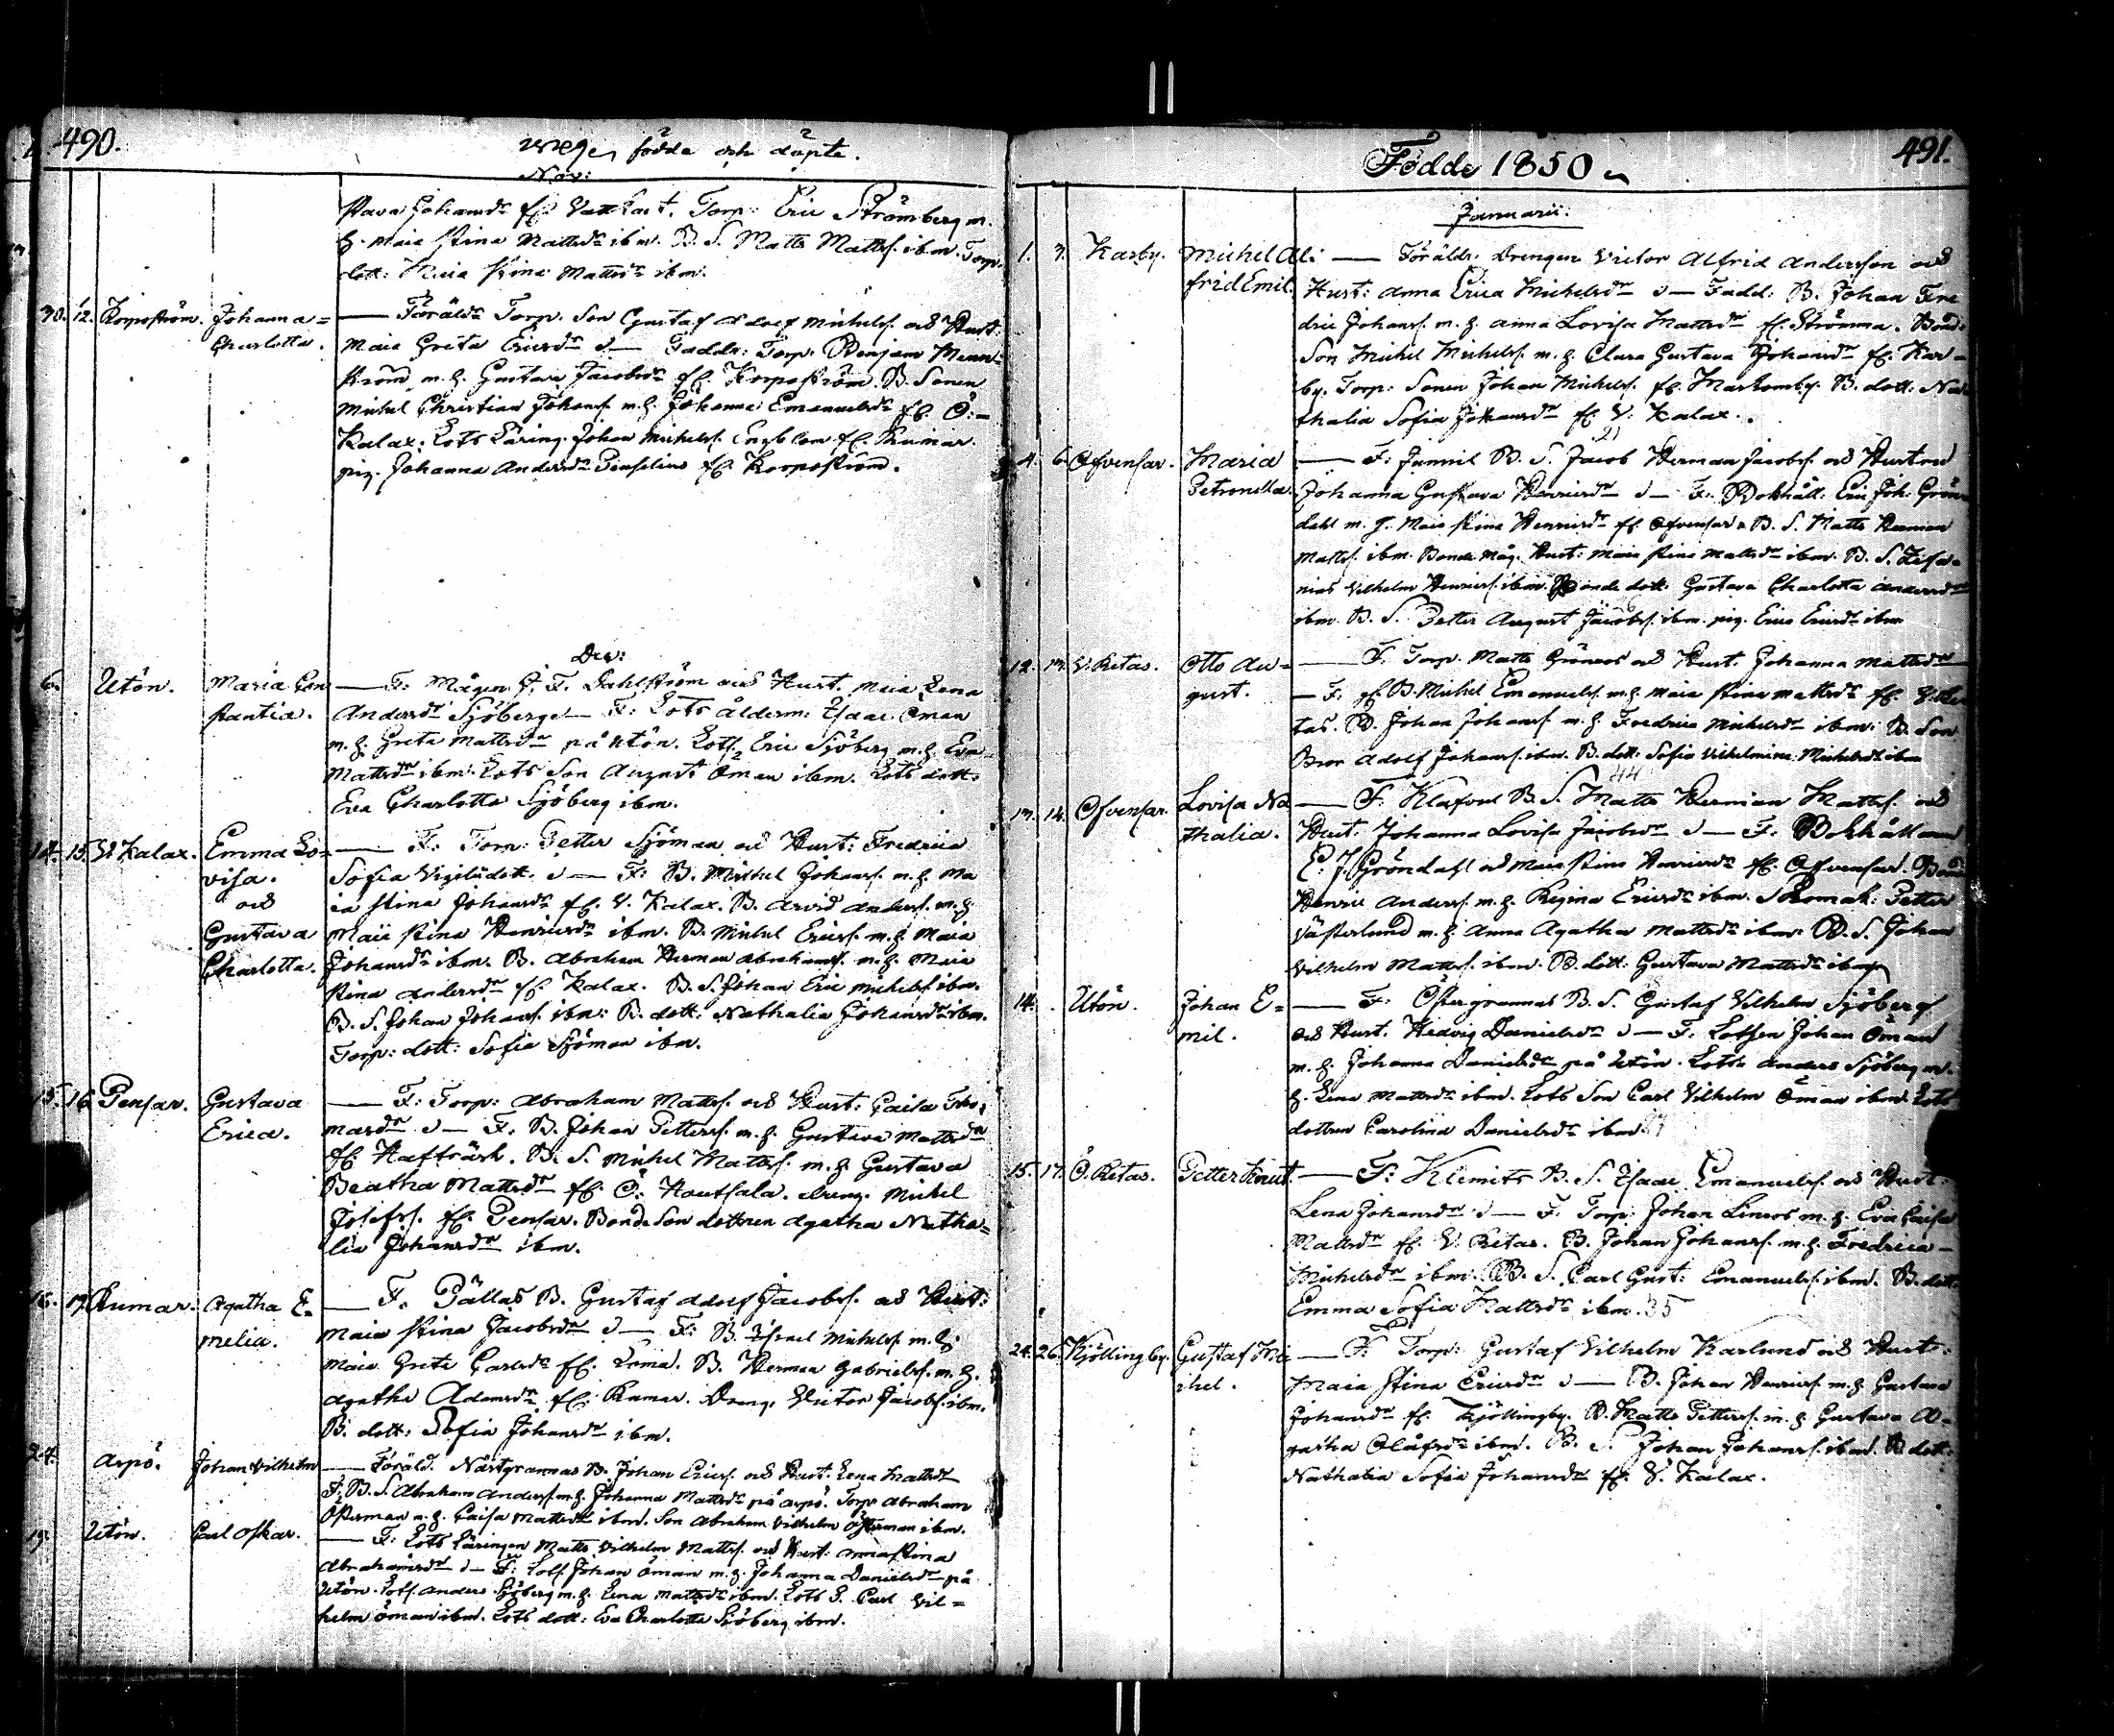 490.
födde och döpte.
Nov:
Stava Johansdr fr. Vattkast. Torp: Eric Strömberg m.
h. Maia Stina Mattsdr ibm. B. S. Matts Mattss. ibm. Torp.
dott: Maia Stina Mattsdr ibm.
30. 12. Korpoström. Johanna= — Föräldr Torp. Son Gustaf Adolf Michelss. och Hust:
Charlotta. Maia Greta Ericsdr — Faddr: Torp. Benjam
ström m. h. Gustava Jacobsdr fr. Korpoström. B. Sonen
Michel Christian Johanss. m. h. Johanna Emanuelsdr fr. Ö:
Kalax. Lots Läring. Johan Michelss. Engblom fr. Rumar.
pig. Johanna Andersdr fr. Korpoström.
Dec:
6. Utön. Maria Con — F: Mågen J. F. Dahlström och Hust. Maia Lena
stantia. Andersdr Sjöberg — F: Lots ålderm: Isaac Öman
m. h. Greta Mattsdr på Utön. Lots. Eric Sjöberg m. h. Eva
Mattsdr ibm. Lots Son August Öman ibm. Lots dott:
Eva Charlotta Sjöberg ibm.
14. 15. V. Kalax. Emma Lo= — F: Torp: Petter Sjöman och Hust: Fredrica
visa. Sofia — F: B. Michel Johanss. m. h. Ma
och ia Stina Johansdr fr. V. Kalax. B. Arvid Anderss. m. h.
Gustava Maia Stina Henricsdr ibm. B. Michel Ericss. m. h. Maia
Charlotta. Johansdr ibm. B. Abraham Herman Abrahamss. m. h. Maia
Stina Andersdr fr. Kalax. B. S. Johan Eric Michelss. ibm.
B. S. Johan Johanss. ibm: B. dott: Nathalia Johansdr ibm.
Torp: dott: Sofia Sjöman ibm.
15. 16. Pensar. Gustava — F: Torp: Abraham Mattss. och Hust: Caisa Tho
Erica. masdr — F. B. Johan Petterss. m. h. Gustava Mattsdr
fr. Kafträsk. B. S. Michel Mattss. m. h. Gustava
Beatha Mattsdr fr. Ö. Houtsala. dreng. Michel
Josefss. fr. Pensar. Bonde Son dottren Agatha Natha=
lia Johansdr ibm.
16. 17. Rumar. Agatha E= — F. Pällas B. Gustaf Adolf Jacobss. och Hust:
melia. Maia Stina Jacobsdr — F: B. Israel Michelss. m. h.
Maia Greta Carlsdr fr. Loma. B. Herman Gabrielss. m. h.
Agatha Adamsdr fr. Rumar. Dreng. Victor Jacobss. ibm.
B. dott: Sofia Johansdr ibm.
24. Aspö. Johan Vilhelm — Föräld. Nästgrannas B. Johan Ericss. och Hust. Lena Mattsdr
F. B. S. Abraham Anderss. m. h. Johanna Mattsdr på Aspö. Torp: Abraham
Österman m. h. Caisa Mattsdr ibm. Son Abraham Vilhelm Österman ibm.
19. Utön. Carl Oskar. — F: Lots Läringen Matts Vilhelm Mattss. och Hust: Anna Stina
Abrahamsdr — F: Lots. Johan Öman m. h. Johanna Danielsdr på
Utön. Lots. Anders Sjöberg m. h. Lena Mattsdr ibm. Lots S. Carl Vil=
helm Öman ibm. Lots dott: Eva Charlotta Sjöberg ibm.
491.
Födde 1850
Januarii:
1. 3. Karby. Michel Al: — Föräldr. Drengen Victor Alfrid Andersson och
frid Emil. Hust: Anna Erica Michelsdr — Fadd: B. Johan Fre
dric Johanss. m. h. Anna Lovisa Mattsdr fr. Strömma. Bond:
Son Michel Michelss. m. h. Clara Gustava Johansdr fr. Kar=
by. Torp: Sonen Johan Michelss. fr. Markomby. B. dott: Na
thalia Sofia Johansdr fr. V. Kalax.
4. 6. Öfvensar. Maria — F: B. S. Jacob Herman Jacobss. och Hustru
Petronella. Johanna Gustava Henricsdr — F: Bokhåll: Eric Joh: Grön
dahl m. h. Maia Stina Henricsdr fr. Öfvensar. B. S. Matts Herman
Mattss. ibm. Bonde Måg. Hust: Maia Stina Mattsdr ibm. B. S.
nias Vilhelm Henricss. ibm. Bonde dott: Gustava Charlotta Andersdr
ibm. B. S. Petter August Jacobss. ibm. pig. Erica Ericsdr ibm
12. 13. V. Retas. Otto Au= — F. Torp. Matts Grönroos och Hust. Johanna Mattsdr
gust. — F: B. Michel Emanuelss. m. h. Maia Stina Mattsdr fr. V. Re
tas. B. Johan Johanss. m. h. Fredrica Michelsdr ibm: B. Son
Bror Adolf Johanss. ibm. B. dott: Sofia Vilhelmina Michelsdr ibm
13. 14. Öfvensar. Lovisa Na — F: Klafvus B. S. Matts Herman Mattss. och
thalia. Hust. Johanna Lovisa Jacobsdr — F: Bokhållaren
E. J. Gröndahl och Maia Stina Henricsdr fr. Öfvensar. Bond
Henric Anderss. m. h. Regina Ericsdr ibm. Skomak: Petter
Västerlund m. h. Anna Agatha Mattsdr ibm: B. S. Johan
Vilhelm Mattss. ibm. B. dott: Gustava Mattsdr ibm
14. Utön. Johan E= — F: Östergrannas B. S. Gustaf Vilhelm Sjöberg
mil. och Hust. Hedvig Danielsdr — F: Lotsen Johan Öman
m. h. Johanna Danielsdr på Utön. Lots Anders Sjöberg m.
h. Lena Mattsdr ibm. Lots Son Carl Vilhelm Öman ibm. Lots
dottren Carolina Danielsdr ibm.
15. 17. Ö. Retas. Petter Knut. — F: Klemits B. S. Isaac Emanuelss. och Hust.
Lena Johansdr — F. Torp: Johan Linroos m. h. Eva Caisa
Mattsdr fr. V. Retas. B. Johan Johanss. m. h. Fredrica
Michelsdr ibm. B. S. Carl Gust: Emanuelss. ibm. B. dott
Emma Sofia Mattsdr ibm. 35
24. 26. Kjöttingby. Gustaf Mi — F. Torp: Gustaf Vilhelm Karlund och Hust:
chel. Maia Stina Ericsdr — B. Johan Henricss. m. h. Gustava
Johansdr fr. Kjöttingby. B. Matts Petterss. m. h. Gustava A=
gatha Olåfsdr ibm. B. S. Johan Johanss. ibm. B dott:
Nathalia Sofia Johansdr fr. V. Kalax.